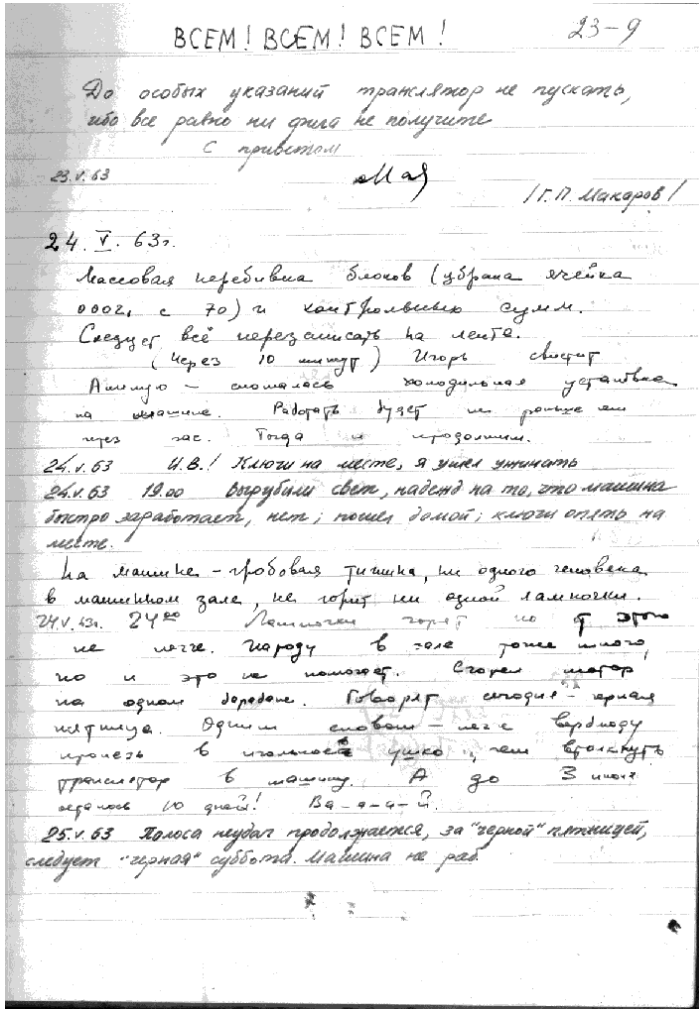 ВСЕМ! ВСЕМ! ВСЕМ!
23-9
До особых указаний транслятор не пускать,
ибо все равно ни фига не получите
С приветом
23.V.63
/Г.П. Макаров/
24. V. 63г.
Массовая перебивка блоков (убрана ячейка
0002, с 70) и контрольных сумм.
Следует всё перезаписать на ленте.
(Через 10 минут) Игорь свистит
Аминую – сломалась холодильная установка
на машине. Работать будет не раньше чем
через час. Тогда и продолжим.
24.V.63 И.В.! Ключи на месте, я ушел ужинать
24.V.63 19.00 Вырубили свет, надежд на то, что машина
быстро заработает, нет; пошел домой; ключи опять на
месте.
На машине – гробовая тишина, ни одного человека
в машинном зале, не горит ни одной лампочки.
24.V.63г. 24⁰⁰ Лампочки горят но от этого
не легче. Народу в зале тоже много,
но и это не помогает. Сгорел мотор
на одном барабане. Говорят сегодня – черная
пятница. Одним словом – легче верблюду
пролезть в игольное ушко, чем втолкнуть
транслятор в машину. А до 3 июня
осталось 10 дней! Ва-а-а-й.
25.V.63 Полоса неудач продолжается, за "черной" пятницей,
следует "черная" суббота. Машина не раб.